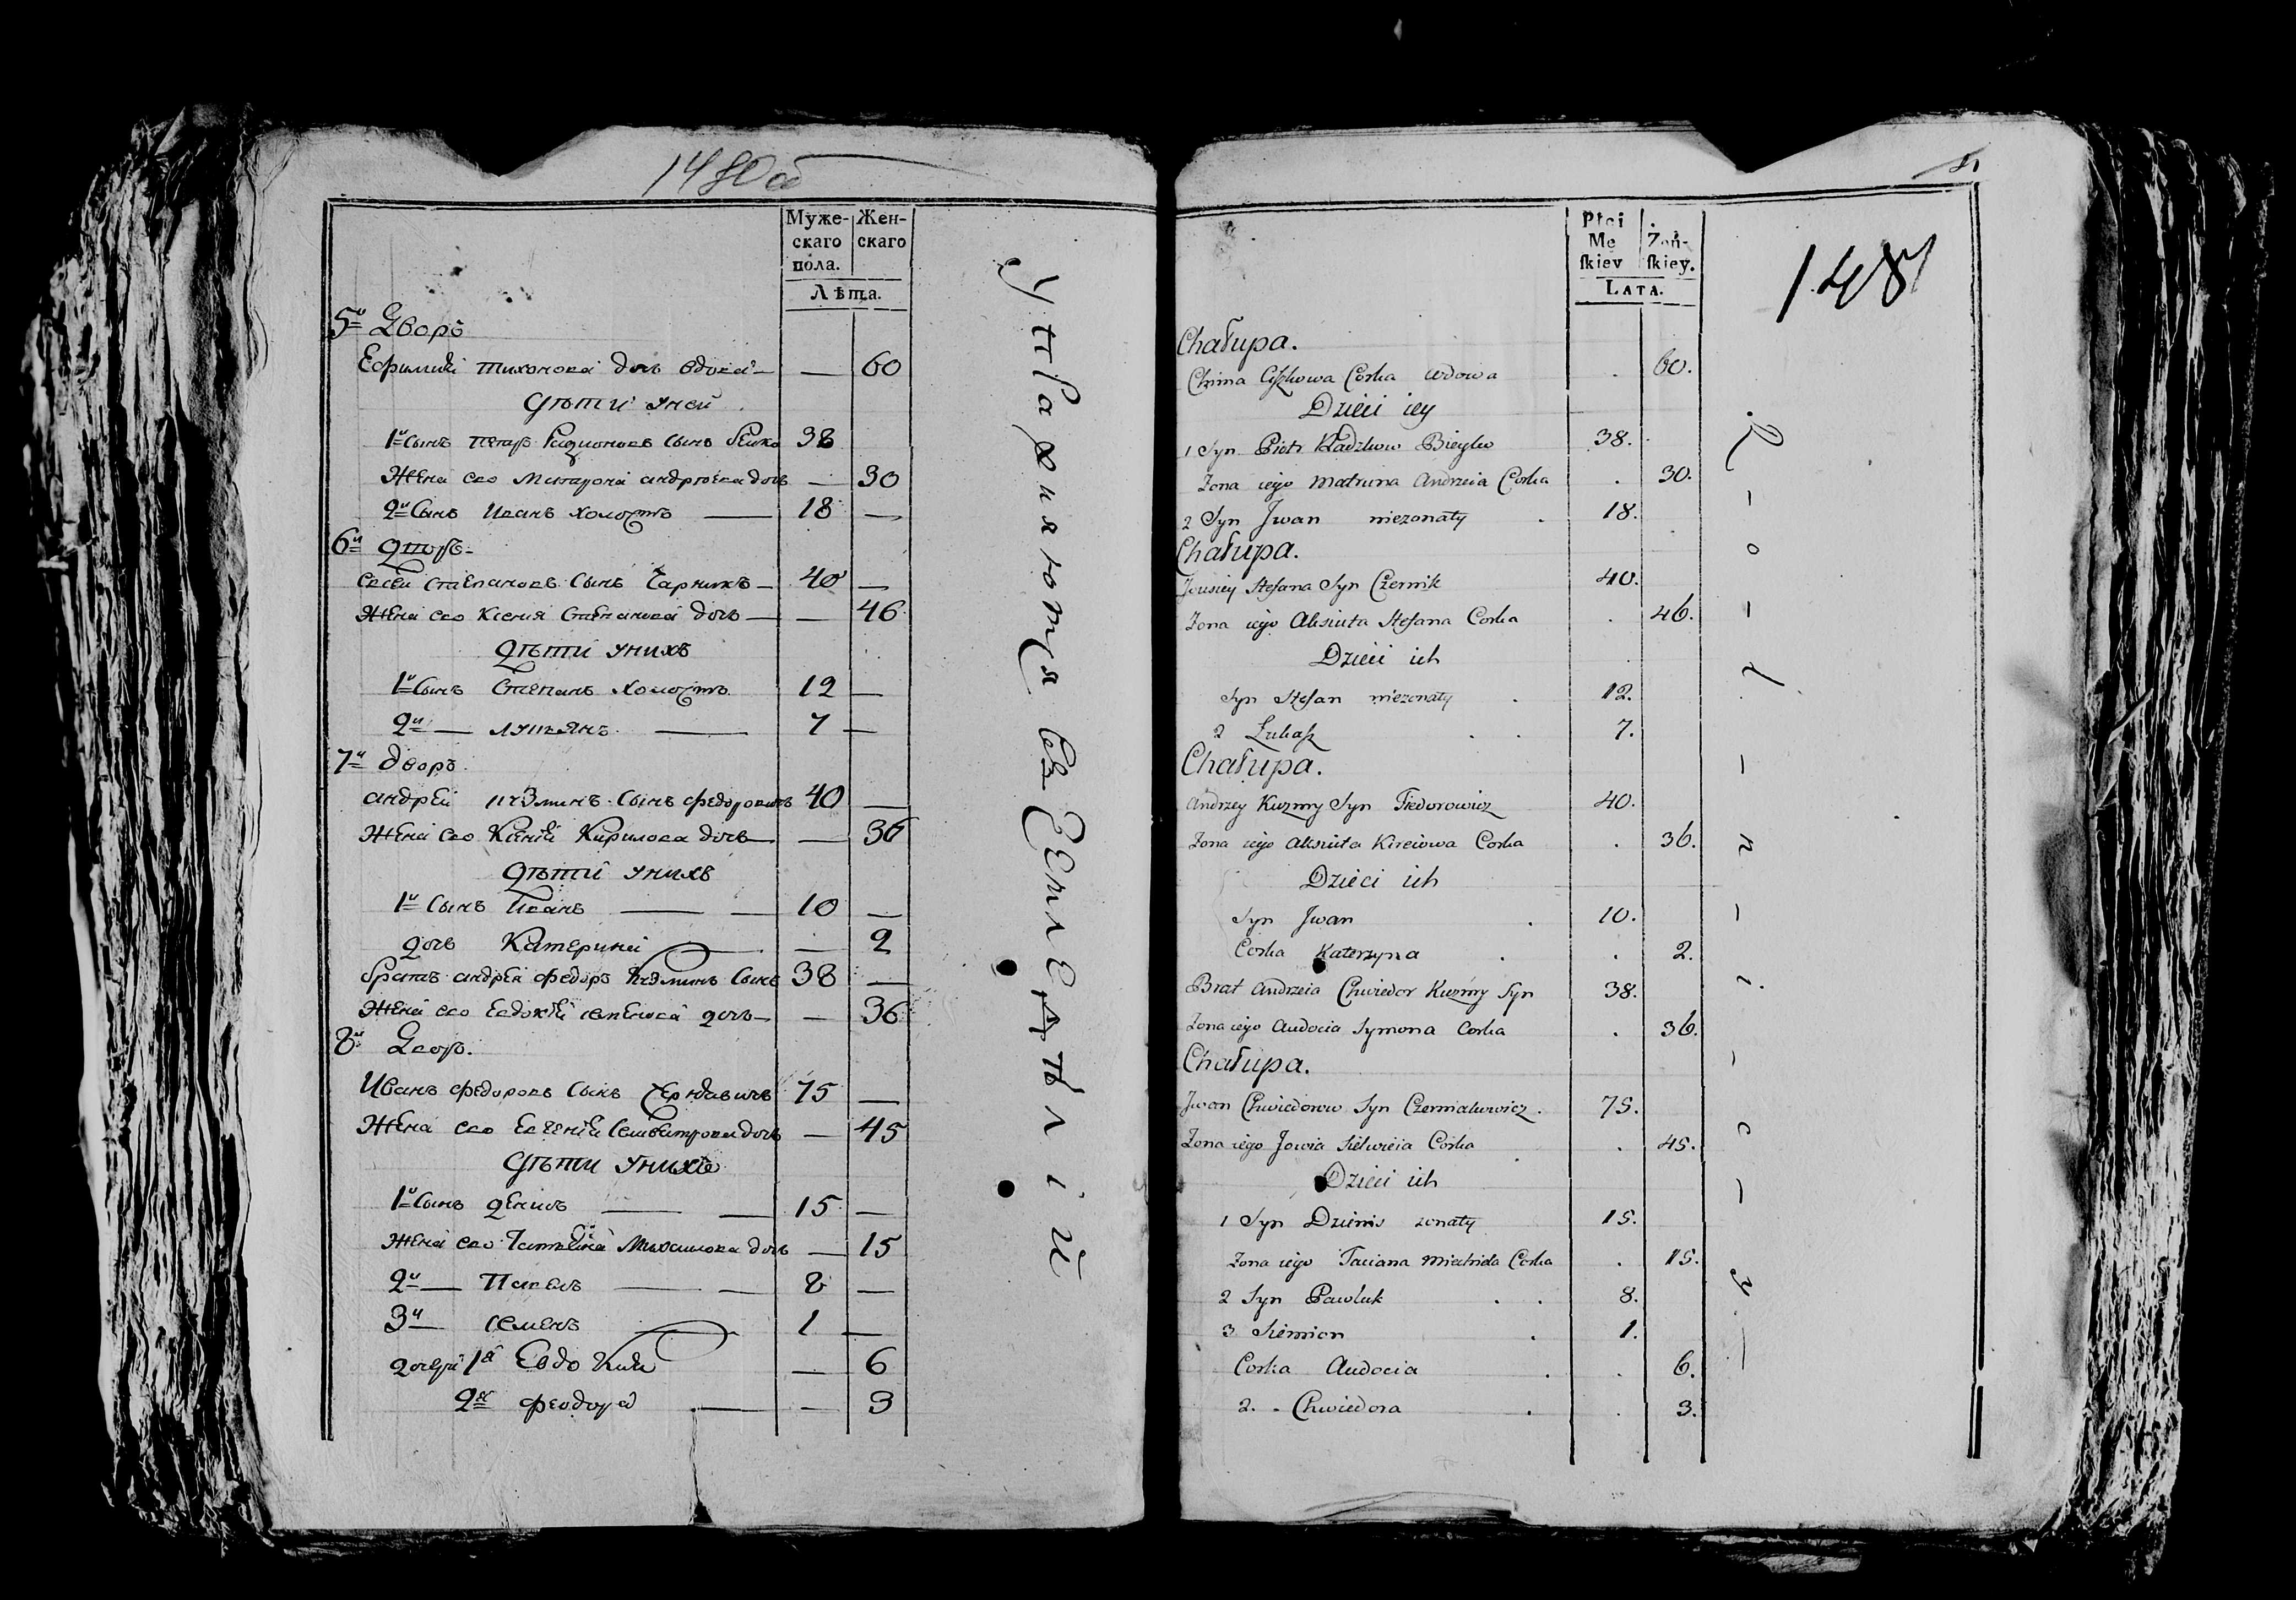 1480 об
Муже-
скаго
пола.
Жен-
скаго
Лѣта.
5й Дворъ
Ефимиѣ Тихонова дочь вдова — — 60
Дѣти у ней
1й Сынъ Петръ Радионовъ Сынъ Бейко 38
Жена его Матрона андреева дочь — 30
2й Сынъ Иванъ холостъ — 18 —
6й Дворъ
Евсей Степановъ Сынъ Чарникъ — 40 —
Жена его Ксения Степанова дочь — — 46
Дѣти у нихъ
1й Сынъ Степанъ холостъ 12 —
2й — лукьянъ — 7 —
7й дворъ
андрей кузминъ Сынъ федоровичъ 40 —
Жена его Ксения Кирилова дочь — — 36
Дѣти у нихъ
1й Сынъ Иванъ — — 10 —
дочь Катерина — — 2
братъ андрея федоръ Кузминъ Сынъ 38 —
Жена его Евдокия семенова дочь — — 36
8й Дворъ.
Иванъ федоровъ Сынъ 75 —
Жена его Евгения дочь — 45
Дѣти у нихъ
1й Сынъ Денисъ — — 15 —
Жена его Татьяна Михаилова дочь — 15
2й — Павелъ — — 8 —
3й — Семенъ — 1 —
дочери 1я Евдокия — — 6
2я феодора — — 3
Упражняются въ Земледѣліи
1481
Płci
Mę
skiey
Żeń-
skiey.
LATA.
Chałupa.
Chima Ciszkowa Corka wdowa . 60.
Dzieci iey
1 Syn Piotr Radzkow Bieyko 38.
Zona iego Matruna Andrzeia Corka . 30.
2 Syn Jwan niezonaty . 18.
Chałupa.
Jewsiey Stefana Syn Czernik 40.
Zona iego Aksiuta Stefana Corka . 46.
Dzieci ich
Syn Stefan niezonaty . 12.
2 Łukasz . . 7.
Chałupa.
Andrzey Kuzmy Syn Fiedorowicz 40.
Zona iego Aksiuta Kireiowa Corka . 36.
Dzieci ich
Syn Jwan . 10.
Corka Katerzyna . . 2.
Brat Andrzeia Chwiedor Kuzmy Syn 38.
Zona iego Audocia Symona Corka . 36.
Chałupa.
Jwan Chwiedorow Syn 75.
Zona iego Jowia Corka . 45.
Dzieci ich
1 Syn Dzienis zonaty 15.
Zona iego Taciana Corka . 15.
2 Syn Pawluk . . 8.
3 Siemion . 1.
Corka Audocia . . 6.
2. . Chwiedora . . 3.
R – o – l – n – i – c – y. –